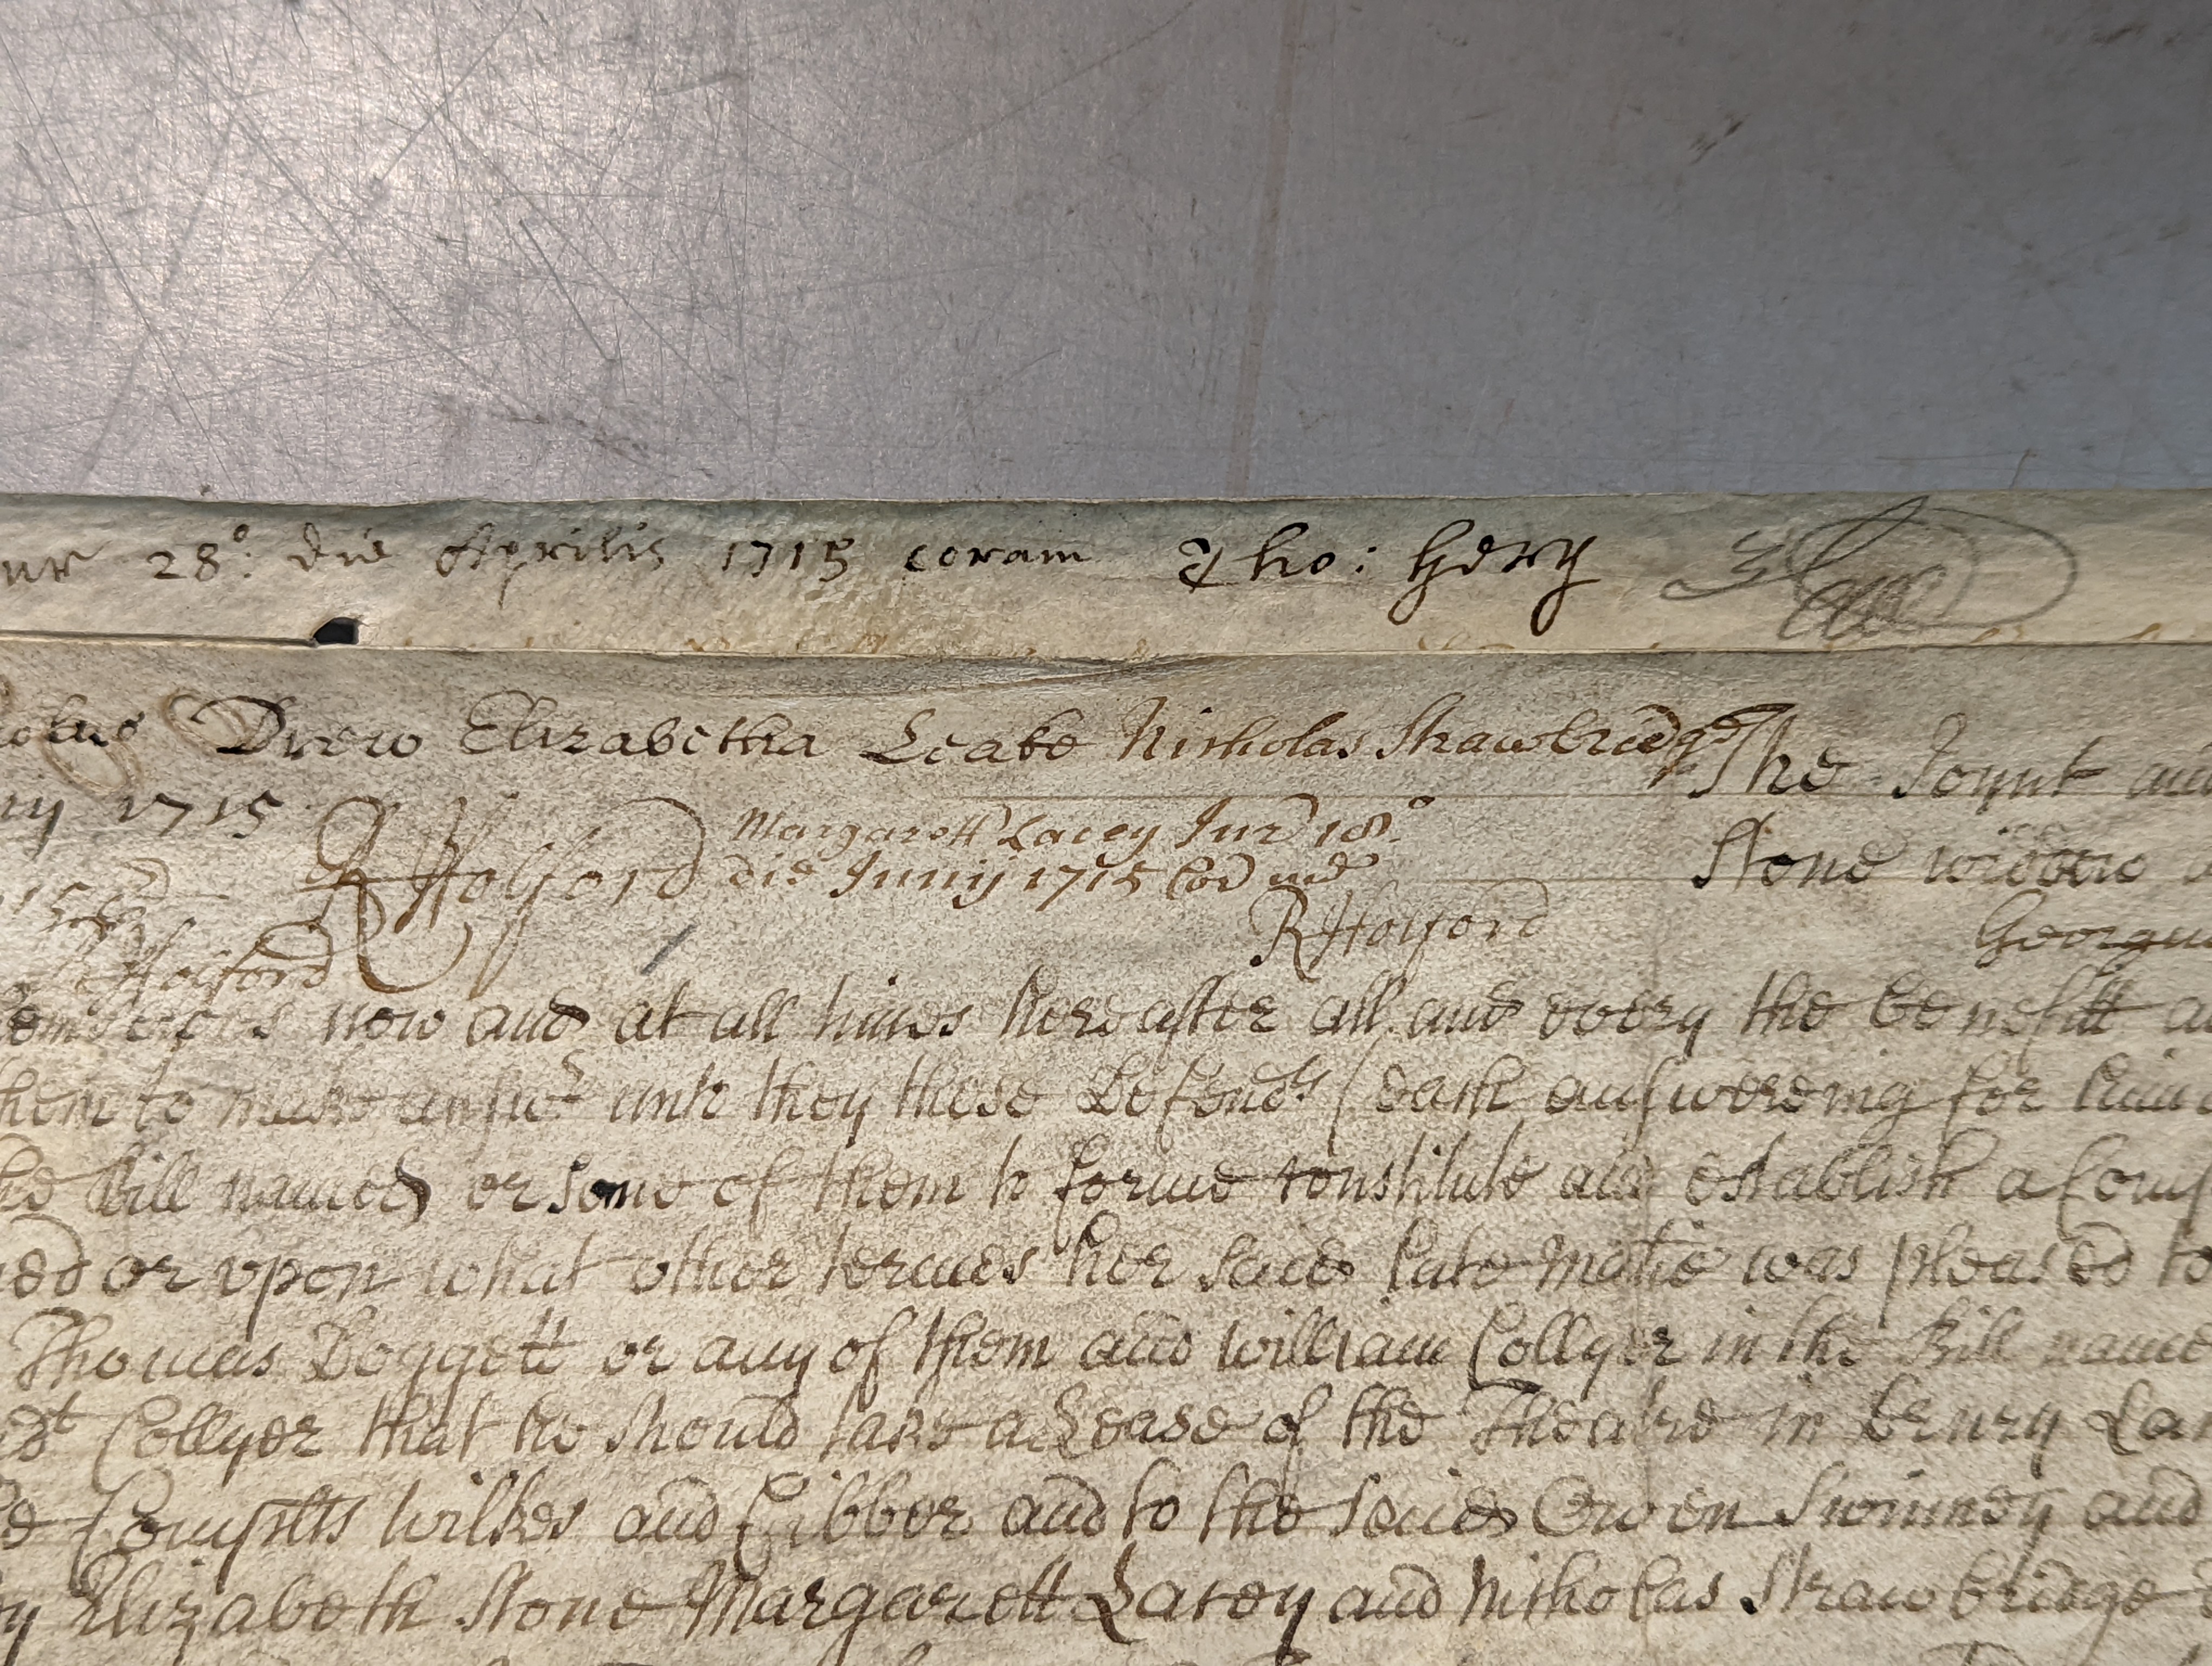 28°: die Aprilis 1715 coram Tho: Gery
Drew Elizabetha Leake Nicholas Strawbridge
The Joynt
1715
R Holford
Margarett Lacey Jur 18°
die Junij 1715 Cor me
R Holford
Stone widow
Holford
now and at all times hereafter all and every the benefitt
them to make answer unto they these Defend.ts (each answering for
Bill named or some of them to forme constitute and establish a
or upon what other termes her said late Ma'tie was pleased to
Thomas Doggett or any of them and William Collyer in the Bill
Collyer that he should take a Lease of the Theatre in Drury
Comp'lts Wilkes and Cibber and to the said Owen Swinney and
Elizabeth Stone Margarett Lacey and Nicholas Strawbridge